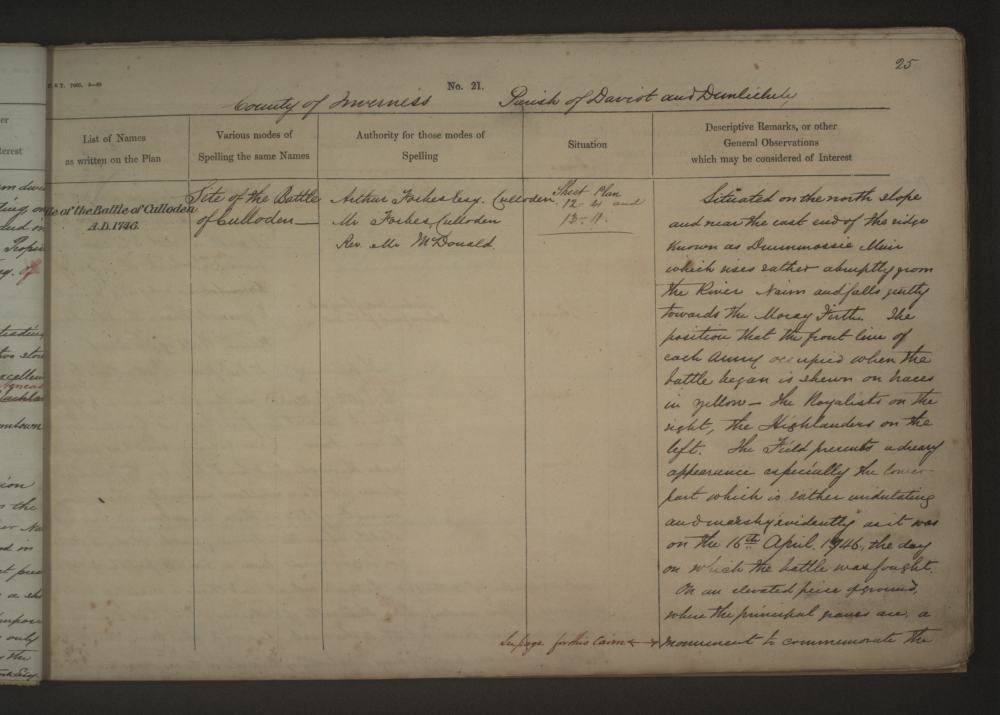 25
No. 21.
County of Inverness Parish of Daviot and Dunlichity
List of Names
as written on the Plan
Various modes of
Spelling the same Names
Authority for those modes of
Spelling
Situation
Descriptive Remarks, or other
General Observations
which may be considered of Interest
te of the Battle of Culloden
A.D. 1746.
Site of the Battle
of Culloden
Arthur Forbes Esq. Culloden
Mr Forbes, Culloden
Rev. Mr McDonald.
Sheet Plan
12 - 4 and
12 - 11.
Situated on the north slope
and near the east end of the ridge
known as Drummossie Muir
which rises rather abruptly from
the River Nairn and falls gently
towards the Moray Firth. The
position that the front line of
each Army occupied when the
battle began is shewn on traces
in yellow - the Royalists on the
right, the Highlanders on the
left. The Field presents a dreary
appearance especially the lower
part which is rather undulating
and marshy evidently as it was
on the 16th April, 1746, the day
on which the battle was fought.
On an elevated piece of ground,
where the principal graves are, a
monument to commemorate the
See page for this Cairn